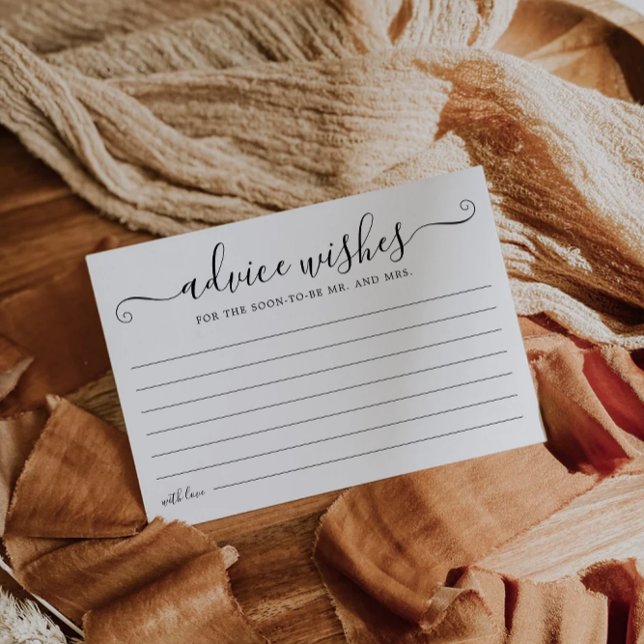 advice wishes
FOR THE SOON-TO-BE MR. AND MRS.
with love